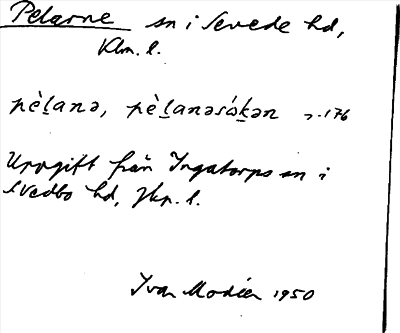 Pelarne sn i Sevede hd,
Klm. l.
pèḻanə, pèḻanəsóḵən s. 176
Uppgift från Ingatorps sn i
Svedbo hd, Jkp. l.
Ivar Modéer 1950